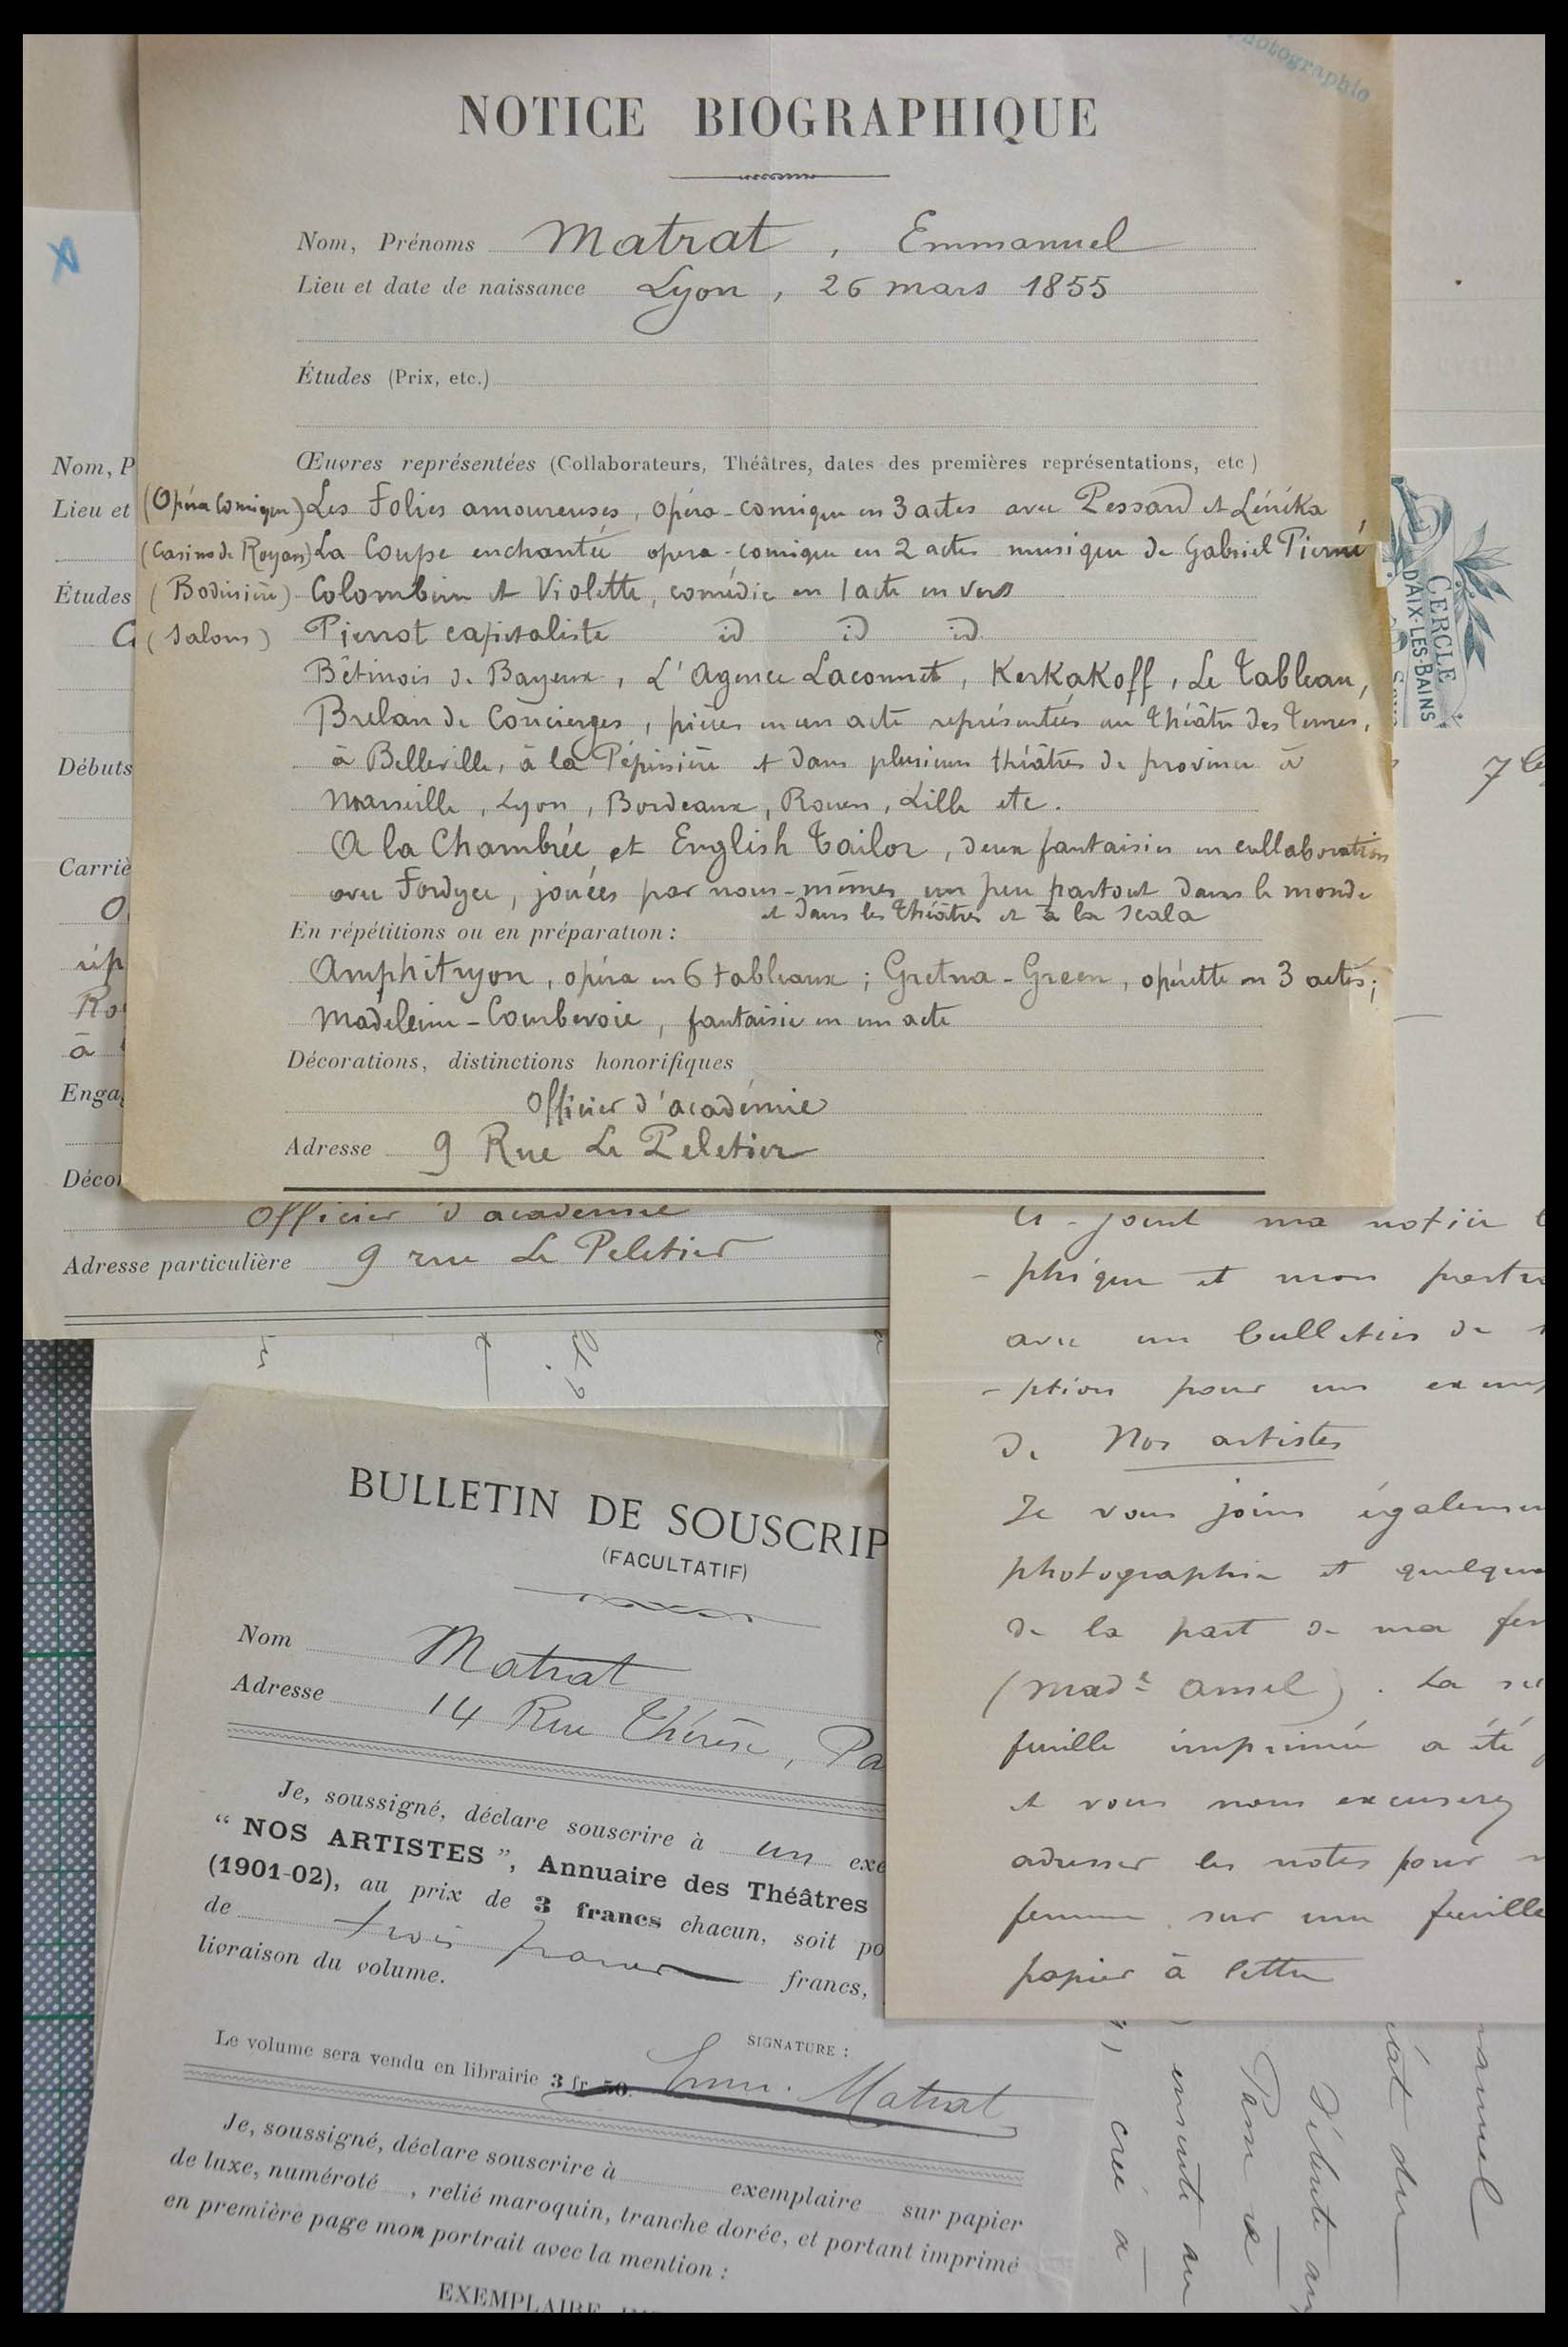 Photographie
NOTICE BIOGRAPHIQUE
Nom, Prénoms Matrat, Emmanuel
Lieu et date de naissance Lyon, 26 mars 1855
Études (Prix, etc.)
Œuvres représentées (Collaborateurs, Théâtres, dates des premières représentations, etc)
(Opéra Comique) Les Folies amoureuses, opéra-comique en 3 actes avec Pessard et Lénéka
(Casino de Royan) La Coupe enchantée opera-comique en 2 actes musique de Gabriel Pierné
(Bodinière) Colombine et Violette, comédie en 1 acte en vers
(Salons) Pierrot capitaliste id id id.
Bétinois de Bayeux, L'Agence Laconnet, Kerkakoff, Le Tableau,
Brelan de Concierges, pièces en un acte représentées au Théâtre des Ternes,
à Belleville, à la Pépinière et dans plusieurs théâtres de province à
Marseille, Lyon, Bordeaux, Rouen, Lille etc.
A la Chambrée et English Tailor, deux fantaisies en collaboration
avec Fordyce, jouées par nous-mêmes un peu partout dans le monde
et dans les théâtres et à la Scala
En répétitions ou en préparation :
Amphitryon, opéra en 6 tableaux ; Gretna-Green, opérette en 3 actes ;
Madeleine-Courbevoie, fantaisie en un acte
Décorations, distinctions honorifiques
Officier d'académie
Adresse 9 Rue Le Peletier
Nom, P
Lieu et
Études
Débuts
Carriè
rép
Ro
à
Enga
Décor
Officier d'academie
Adresse particulière 9 rue Le Peletier
CERCLE
D'AIX-LES-BAINS
Ci-joint ma notice
-phique et mon portr
avec un bulletin de
-ption pour un exem
de Nos artistes
Je vous joins égalemen
photographie et quelque
de la part de ma fem
(Made Amel). La
feuille imprimée a été
et vous nous excuserez
adresser les notes pour
femme sur une feuille
papier à lettre
BULLETIN DE SOUSCRIP
(FACULTATIF)
Nom Matrat
Adresse 14 Rue Thérèse, Pa
Je, soussigné, déclare souscrire à un exe
“ NOS ARTISTES ”, Annuaire des Théâtres
(1901-02), au prix de 3 francs chacun, soit po
de trois francs francs,
livraison du volume.
SIGNATURE :
Le volume sera vendu en librairie 3 fr. 50. Emm. Matrat
Je, soussigné, déclare souscrire à exemplaire sur papier
de luxe, numéroté , relié maroquin, tranche dorée, et portant imprimé
en première page mon portrait avec la mention :
EXEMPLAIRE
anuel
Débute au
ensuite au
créé à